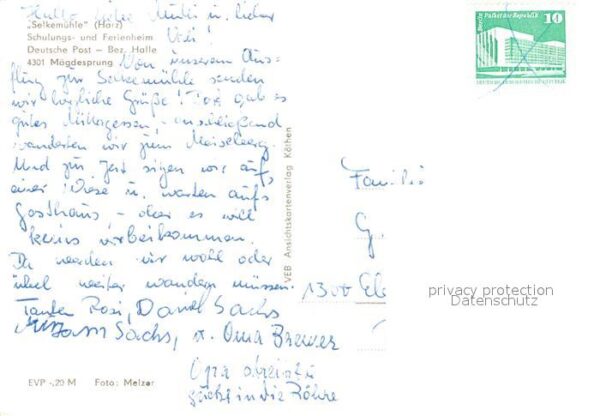 Hallo liebe Mutti u. lieber
Vati!
„Selkemühle" (Harz)
Schulungs- und Ferienheim
Deutsche Post — Bez. Halle
4301 Mägdesprung
Von unserem Aus-
flug zur Selkemühle senden
wir herzliche Grüße! Dort gab es
gutes Mittagessen, anschließend
wanderten wir zum Meiseberg.
Und zur Zeit sitzen wir auf
einer Wiese u. warten aufs
Gasthaus, – aber es will
keins vorbeikommen.
Da werden wir wohl oder
übel weiter wandern müssen.
Tante Rosi, Daniel Sachs
Sachs, u. Oma Brewer
Opa
guckt in die Röhre
EVP -,20 M Foto: Melzer
VEB Ansichtskartenverlag Köthen
Berlin, Palast der Republik
10
Familie
G.
1300
privacy protection
Datenschutz